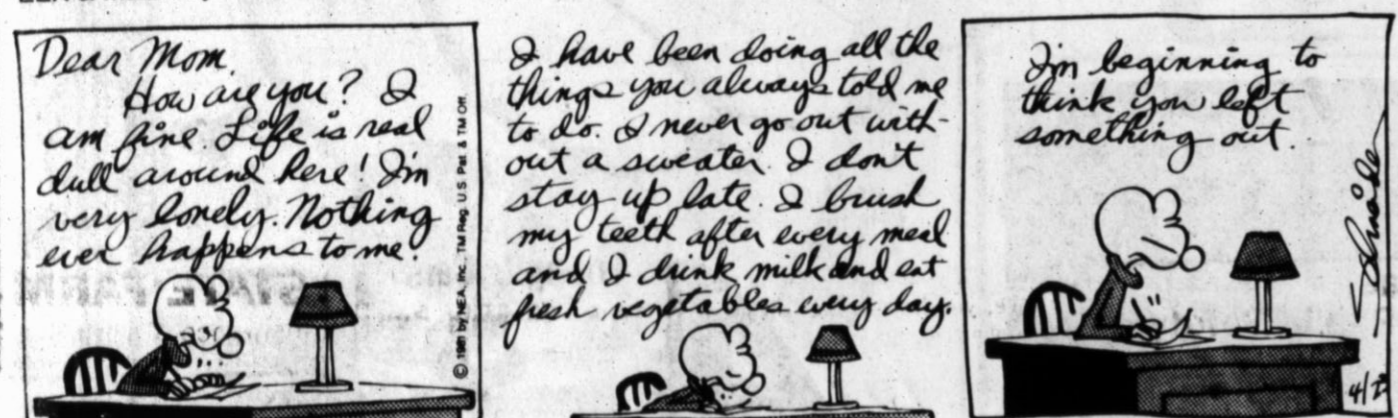 Dear Mom,
How are you? I
am fine. Life is real
dull around here! I'm
very lonely. Nothing
ever happens to me!
© 1981 by NEA, Inc., TM Reg. U.S. Pat. & TM Off.
I have been doing all the
things you always told me
to do. I never go out with-
out a sweater. I don't
stay up late. I brush
my teeth after every meal
and I drink milk and eat
fresh vegetables every day.
I'm beginning to
think you left
something out.
STATE FARM